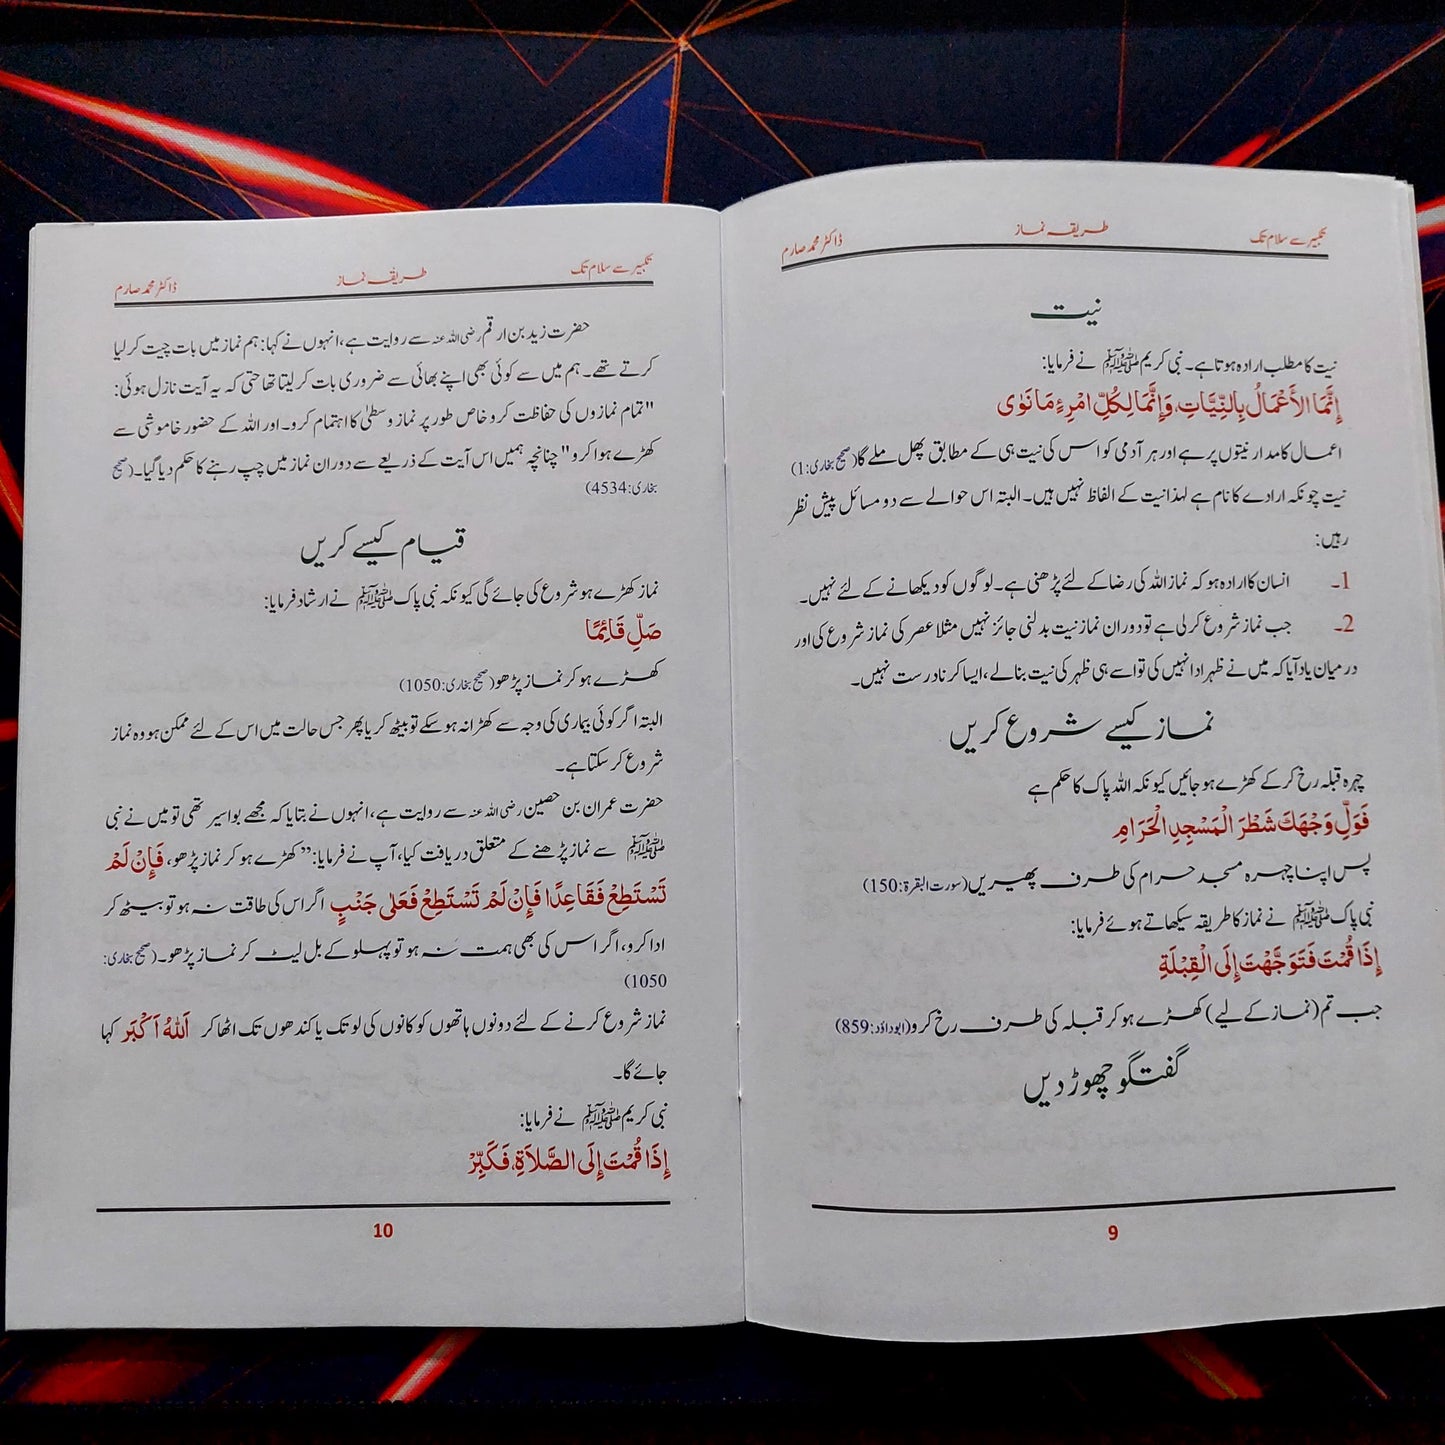 تکبیر سے سلام تک طریقہ نماز ڈاکٹر محمد صارم
نیت
نیت کا مطلب ارادہ ہوتا ہے۔ نبی کریم ﷺ نے فرمایا:
إِنَّمَا الأَعْمَالُ بِالنِّيَّاتِ، وَإِنَّمَا لِكُلِّ امْرِءٍ مَا نَوٰی
اعمال کا مدار نیتوں پر ہے اور ہر آدمی کو اس کی نیت ہی کے مطابق پھل ملے گا (صحیح بخاری:1)
نیت چونکہ ارادے کا نام ہے لہذا نیت کے الفاظ نہیں ہیں۔ البتہ اس حوالے سے دو مسائل پیش نظر
رہیں:
1۔ انسان کا ارادہ ہو کہ نماز اللہ کی رضا کے لئے پڑھنی ہے۔ لوگوں کو دیکھانے کے لئے نہیں۔
2۔ جب نماز شروع کر لی ہے تو دوران نماز نیت بدلنی جائز نہیں مثلا عصر کی نماز شروع کی اور
درمیان یاد آیا کہ میں نے ظہر ادا نہیں کی تو اسے ہی ظہر کی نیت بنا لے، ایسا کرنا درست نہیں۔
نماز کیسے شروع کریں
چہرہ قبلہ رخ کر کے کھڑے ہو جائیں کیونکہ اللہ پاک کا حکم ہے
فَوَلِّ وَجْهَكَ شَطْرَ الْمَسْجِدِ الْحَرَامِ
پس اپنا چہرہ مسجد حرام کی طرف پھیریں (سورت البقرۃ:150)
نبی پاک ﷺ نے نماز کا طریقہ سیکھاتے ہوئے فرمایا:
إِذَا قُمْتَ فَتَوَجَّهْتَ إِلَى الْقِبْلَةِ
جب تم (نماز کے لیے) کھڑے ہو کر قبلہ کی طرف رخ کرو (ابوداؤد:859)
گفتگو چھوڑ دیں
9
تکبیر سے سلام تک طریقہ نماز ڈاکٹر محمد صارم
حضرت زید بن ارقم رضی اللہ عنہ سے روایت ہے، انہوں نے کہا: ہم نماز میں بات چیت کر لیا
کرتے تھے۔ ہم میں سے کوئی بھی اپنے بھائی سے ضروری بات کر لیتا تھا حتی کہ یہ آیت نازل ہوئی:
"تمام نمازوں کی حفاظت کرو خاص طور پر نماز وسطیٰ کا اہتمام کرو۔ اور اللہ کے حضور خاموشی سے
کھڑے ہوا کرو" چنانچہ ہمیں اس آیت کے ذریعے سے دوران نماز میں چپ رہنے کا حکم دیا گیا۔ (صحیح
بخاری:4534)
قیام کیسے کریں
نماز کھڑے ہو شروع کی جائے گی کیونکہ نبی پاک ﷺ نے ارشاد فرمایا:
صَلِّ قَائِمًا
کھڑے ہو کر نماز پڑھو (صحیح بخاری:1050)
البتہ اگر کوئی بیماری کی وجہ سے کھڑا نہ ہو سکے تو بیٹھ کر یا پھر جس حالت میں اس کے لئے ممکن ہو وہ نماز
شروع کر سکتا ہے۔
حضرت عمران بن حصین رضی اللہ عنہ سے روایت ہے، انہوں نے بتایا کہ مجھے بواسیر تھی تو میں نے نبی
ﷺ سے نماز پڑھنے کے متعلق دریافت کیا، آپ نے فرمایا: ”کھڑے ہو کر نماز پڑھو، فَإِنْ لَمْ
تَسْتَطِعْ فَقَاعِدًا فَإِنْ لَمْ تَسْتَطِعْ فَعَلٰی جَنْبٍ اگر اس کی طاقت نہ ہو تو بیٹھ کر
ادا کرو، اگر اس کی بھی ہمت نہ ہو تو پہلو کے بل لیٹ کر نماز پڑھو۔ (صحیح بخاری:
1050)
نماز شروع کرنے کے لئے دونوں ہاتھوں کو کانوں کی لو تک یا کندھوں تک اٹھا کر اَللهُ اَكْبَر کہا
جائے گا۔
نبی کریم ﷺ نے فرمایا:
إِذَا قُمْتَ إِلَى الصَّلاَةِ، فَكَبِّرْ
10